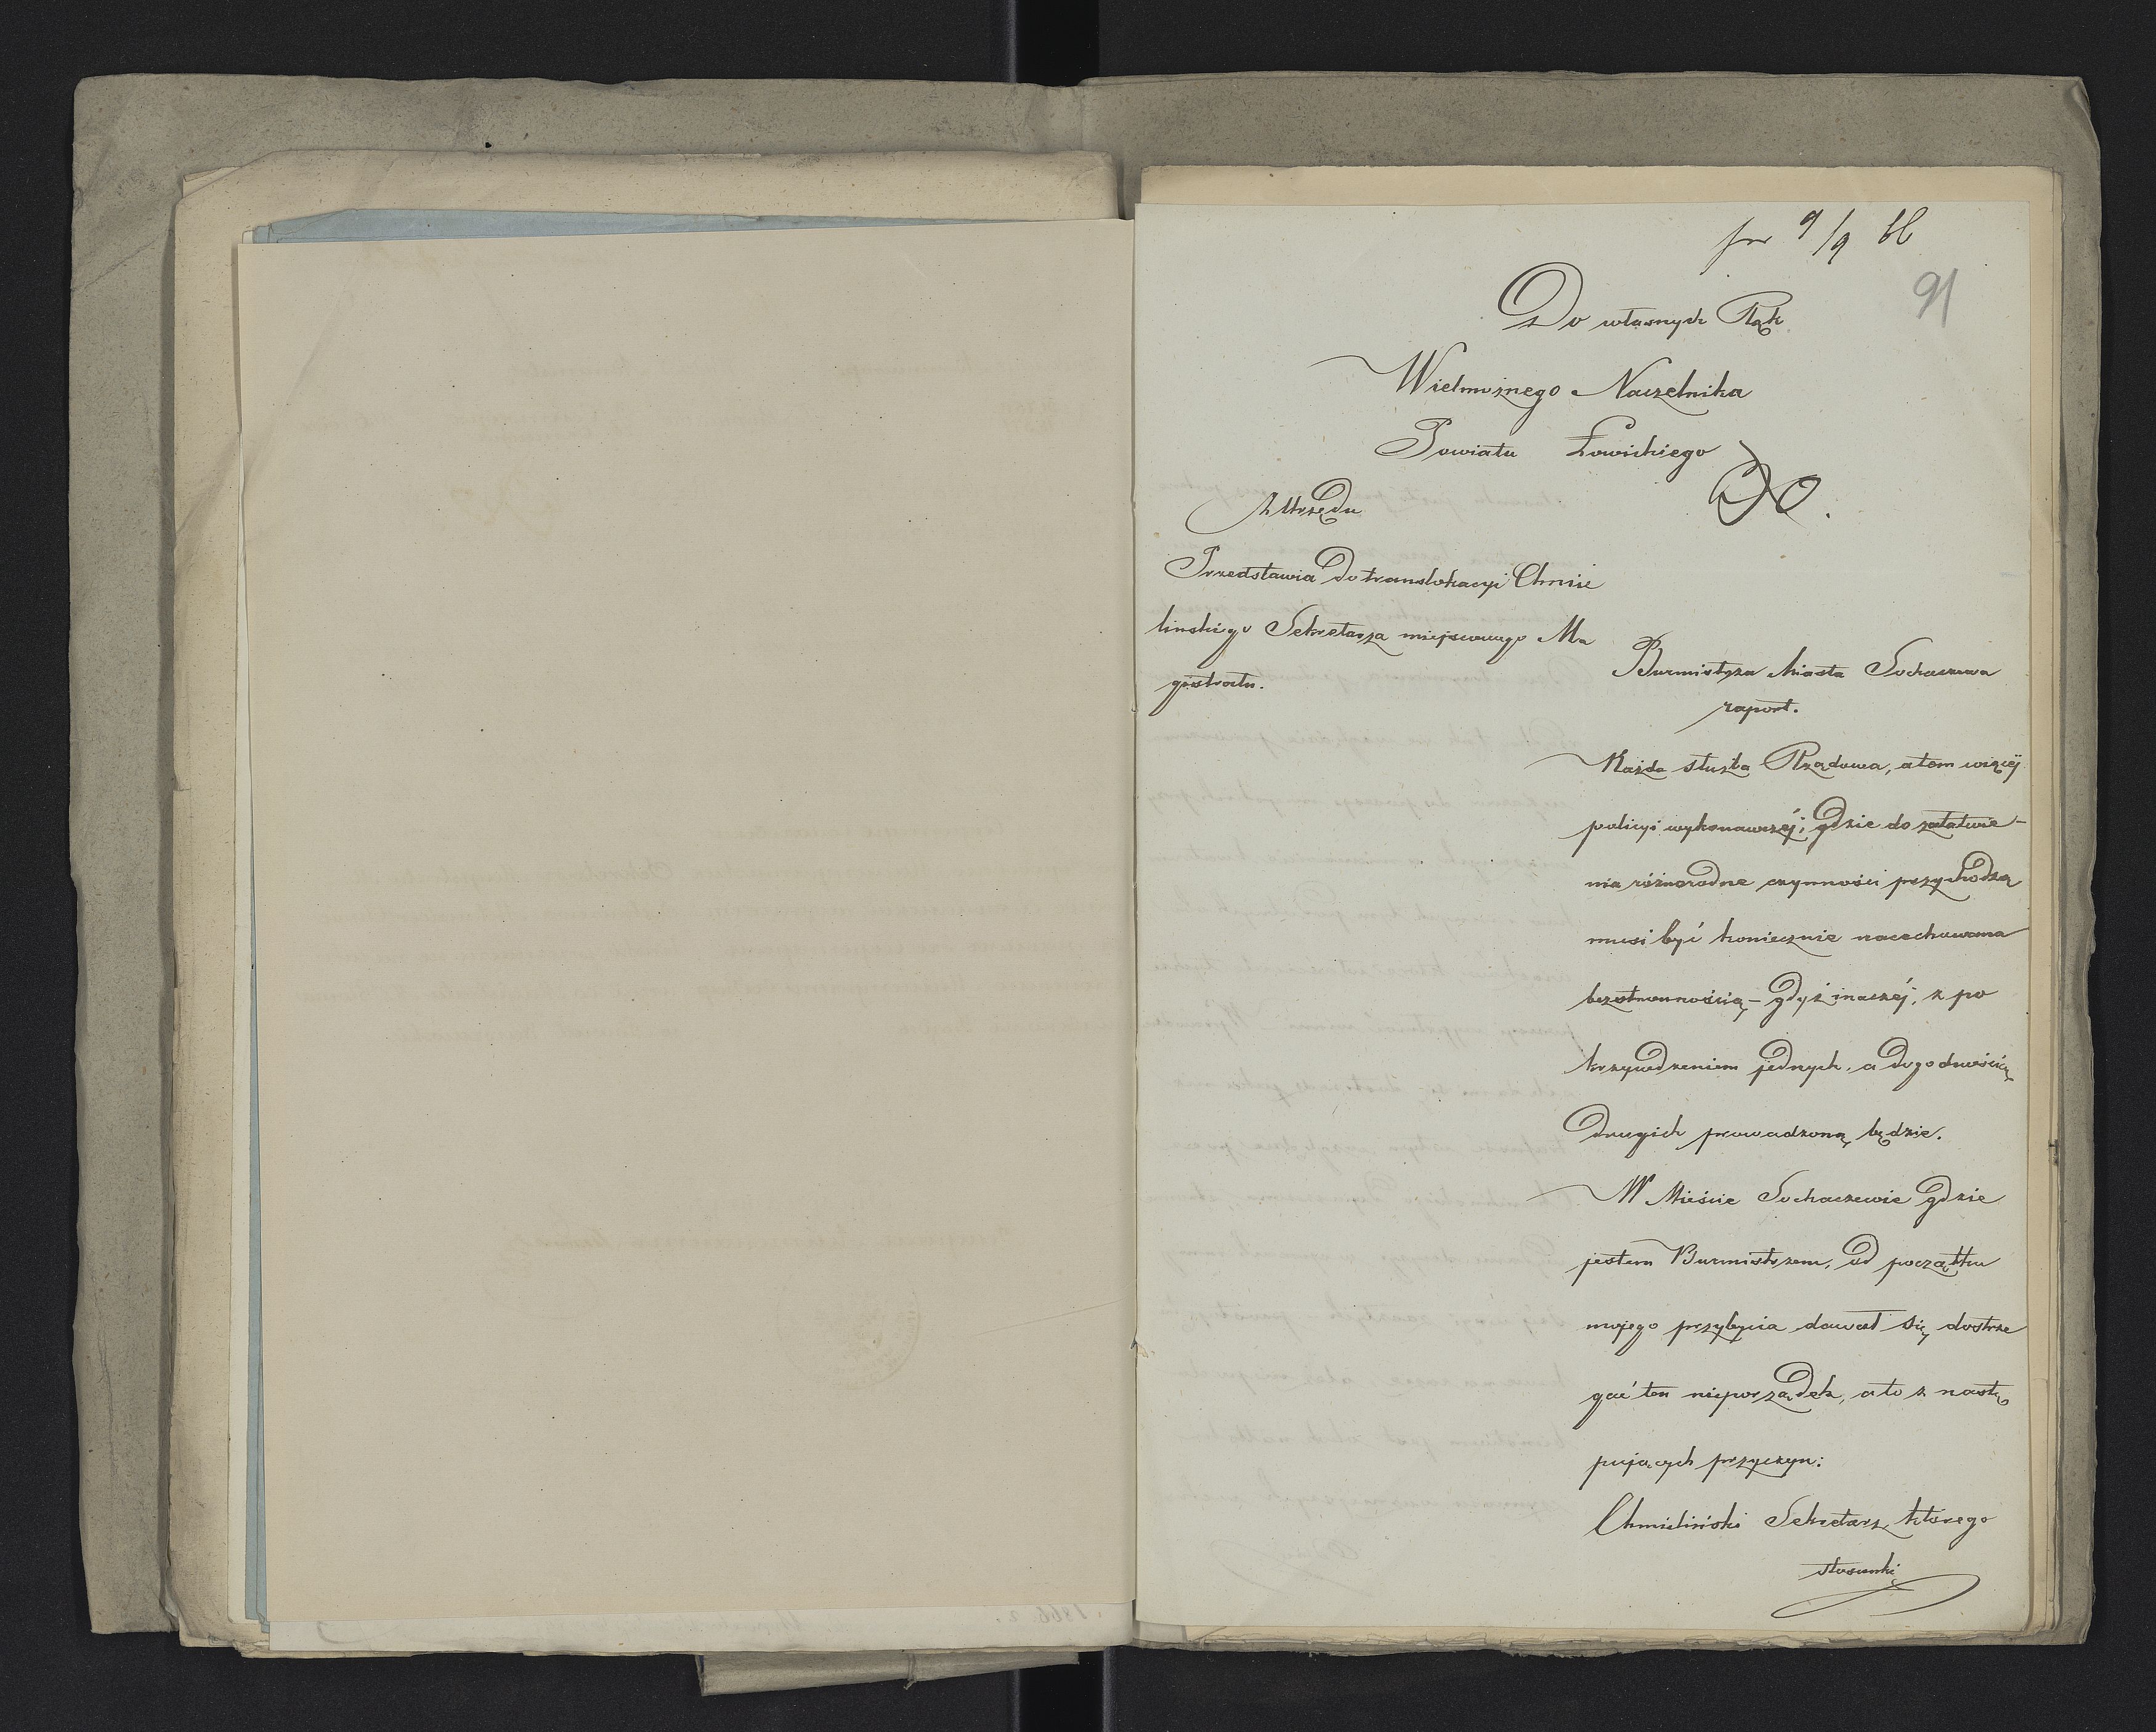 pr 9/9 66
91
Do własnych Rąk
Wielmożnego Naczelnika
Powiatu Łowickiego
Z Urzędu
Przedstawia do translokacyi Chmie
linskiego Sekretarza miejscowego Ma
gistratu.
Burmistrza Miasta Sochaczewa
raport.
Każda służba Rządowa, a tem więcej
policyi wykonawczéj, gdzie do załatwie-
nia różnorodne czynności przychodzą
musi być koniecznie nacechowana
bezstronnością, – gdyż inaczéj, z po
krzywdzeniem jednych, a dogodnością
drugich prowadzoną będzie.
W Mieście Sochaczewie gdzie
jestem Burmistrzem, od początku
mojego przybycia dawał się dostrze
gać ten nieporządek, a to z nastę
pujących przyczyn:
Chmieliński Sekretarz, którego
stosunki